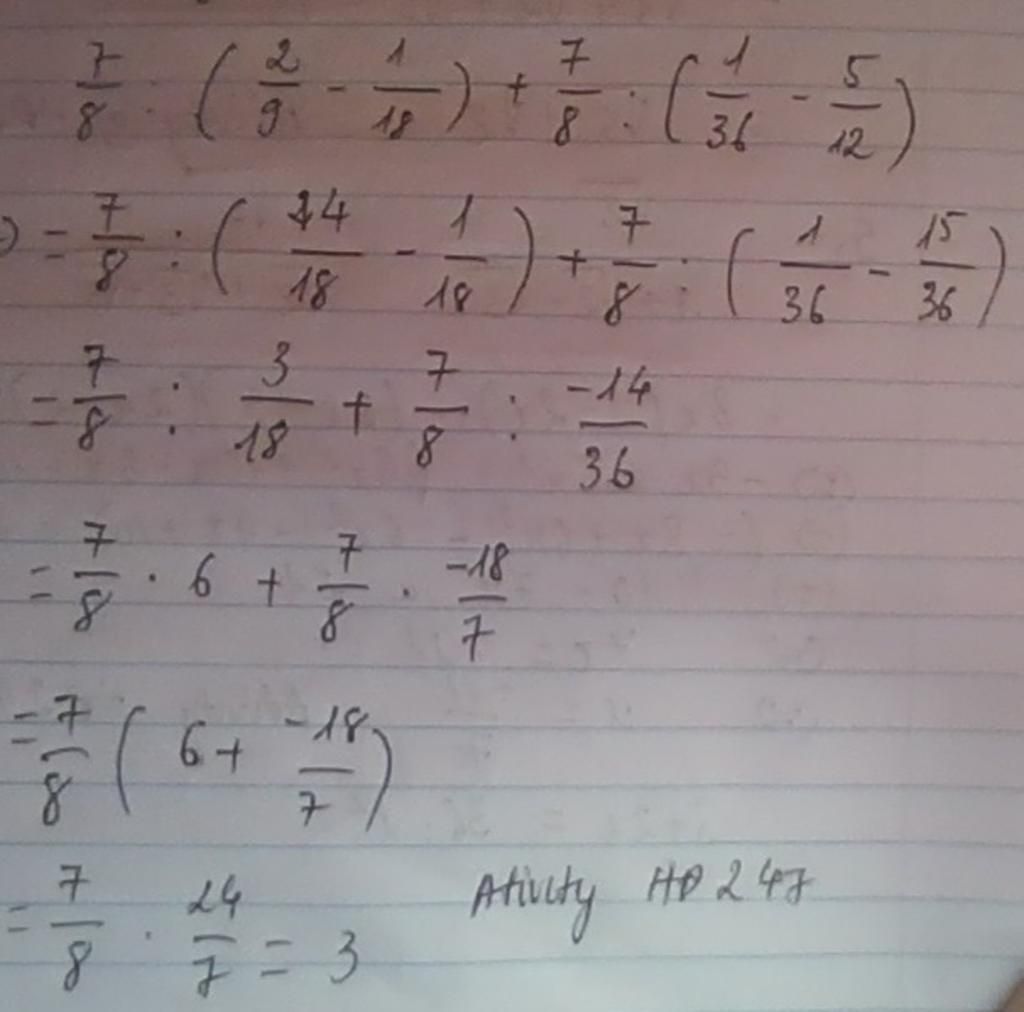 7/8 : (2/9 - 1/18) + 7/8 : (1/36 - 5/12)
= 7/8 : (4/18 - 1/18) + 7/8 : (1/36 - 15/36)
= 7/8 : 3/18 + 7/8 : -14/36
= 7/8 . 6 + 7/8 . -18/7
= 7/8 (6 + -18/7)
= 7/8 . 24/7 = 3